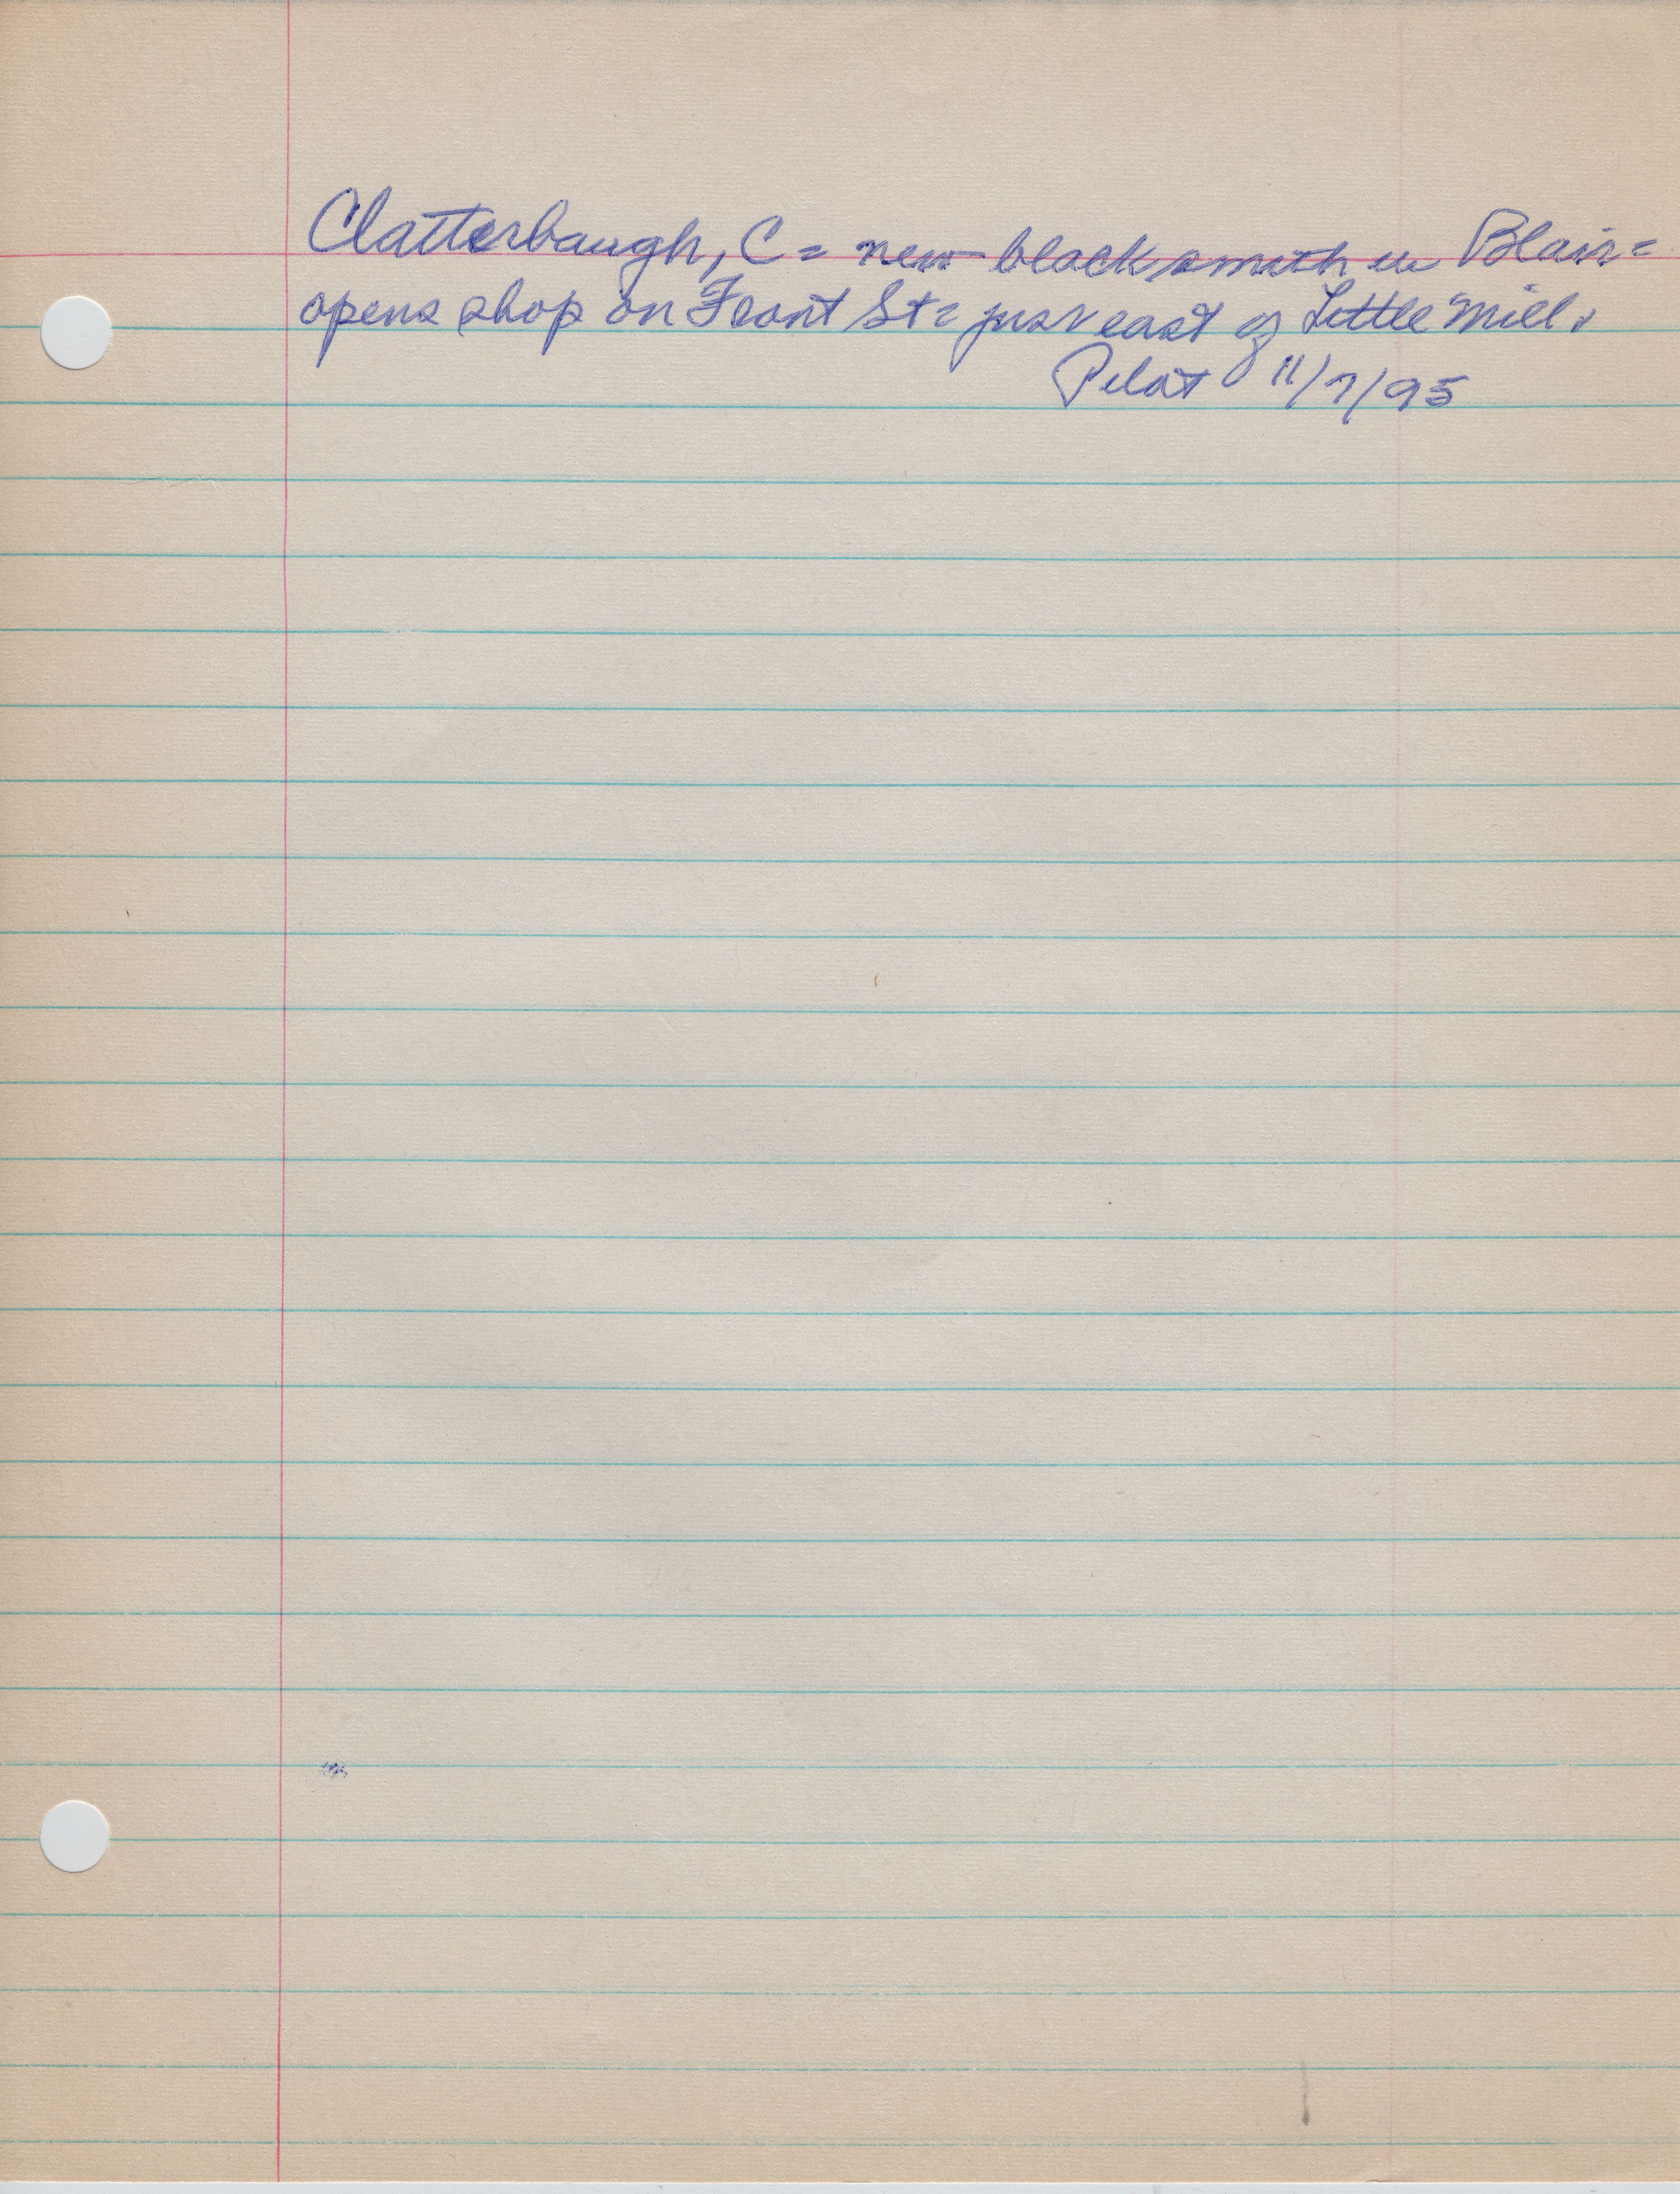 Clatterbaugh, C = new black smith in Blair =
opens shop on Front St = just east of Little Mill.
Pilot 11/7/95